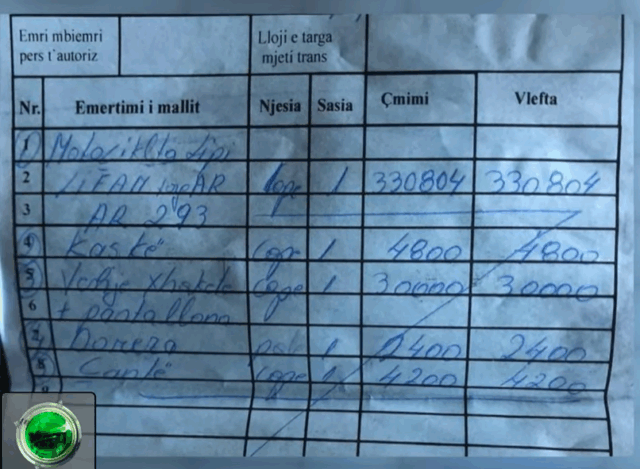 Emri mbiemri
pers t'autoriz
Lloji e targa
mjeti trans
Nr. Emertimi i mallit Njesia Sasia Çmimi Vlefta
1 Motoçikleta tipi
2 LIFAN AR cope 1 330804 330804
3 AR 293
4 Kaskë cope 1 4800 4800
5 Veshje xhakete cope 1 30000 30000
6 + pantallona
7 Doreza pale 1 2400 2400
8 Çantë cope 4200 4200